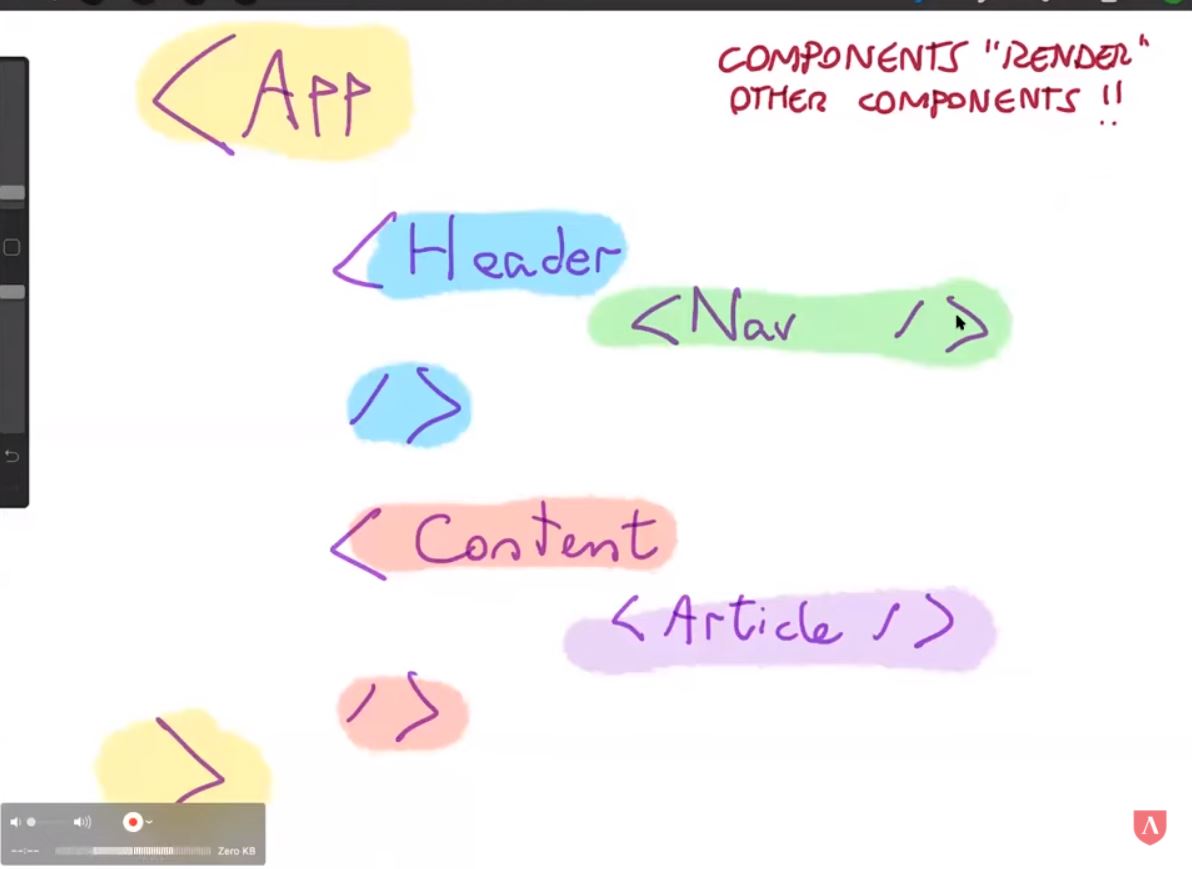 <App
COMPONENTS "RENDER"
OTHER COMPONENTS !!
<Header
<Nav />
/>
<Content
<Article />
/>
>
--:--
Zero KB